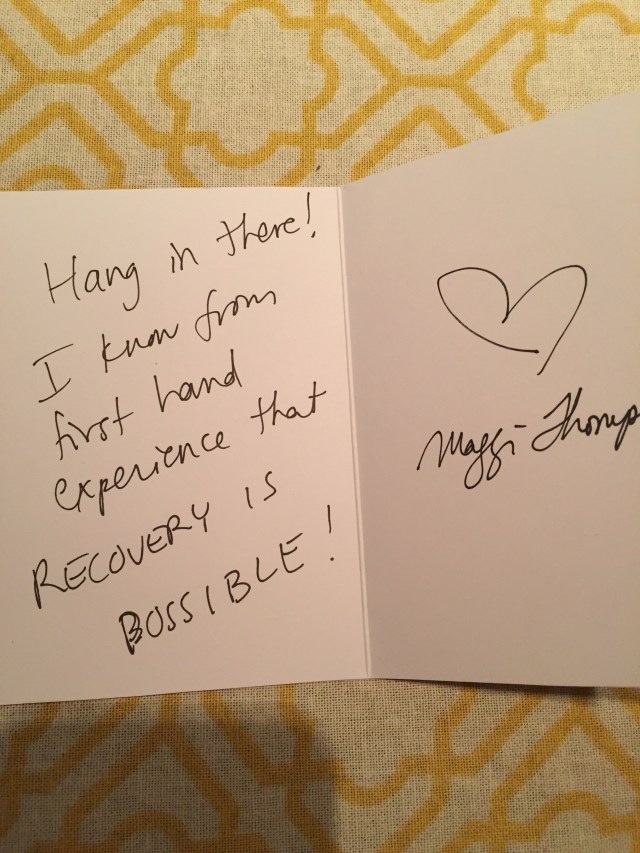 Hang in there!
I know from
first hand
experience that
RECOVERY IS
POSSIBLE!
Maggi Thomp